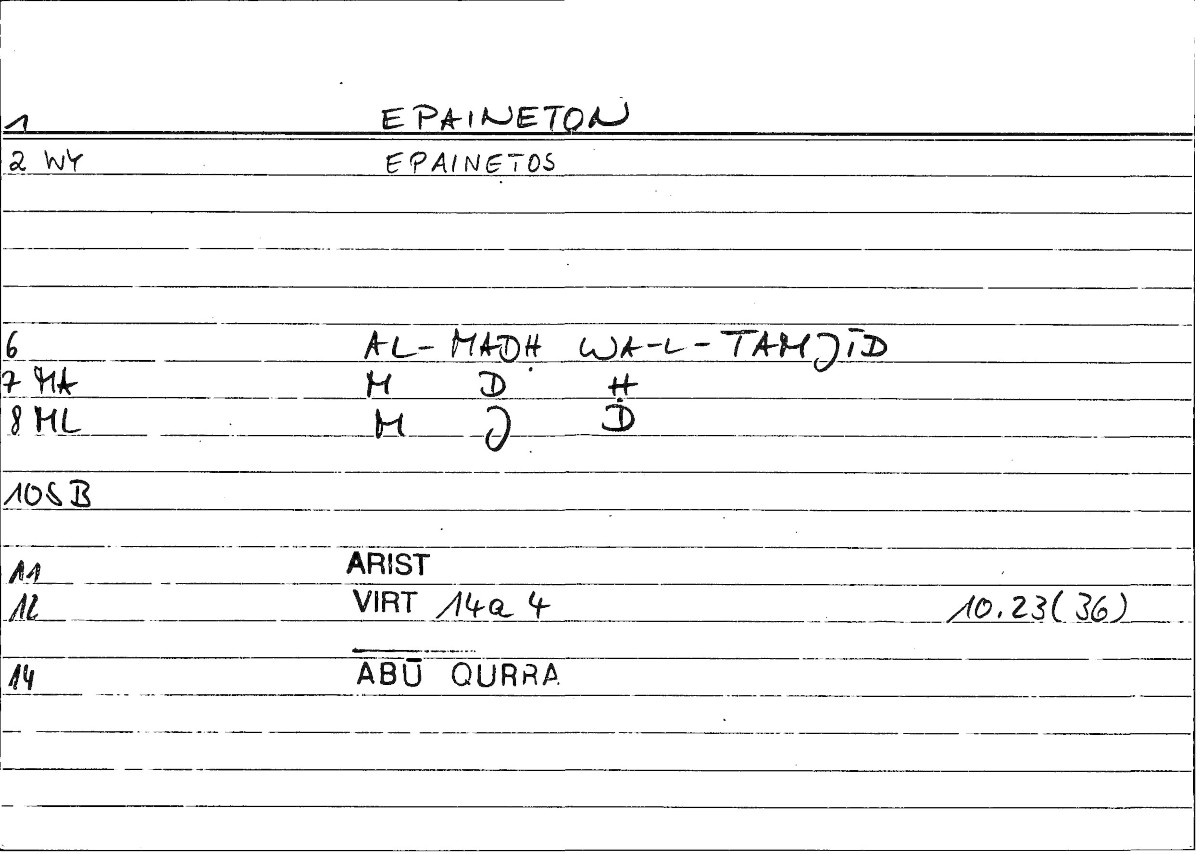 1 EPAINETON
2 WY EPAINETOS
6 AL-MADḤ WA-L-TAMJĪD
7 MA M D Ḥ
8 ML M J D
10 SB
11 ARIST
12 VIRT 14a 4 10.23(36)
14 ABŪ QURRA